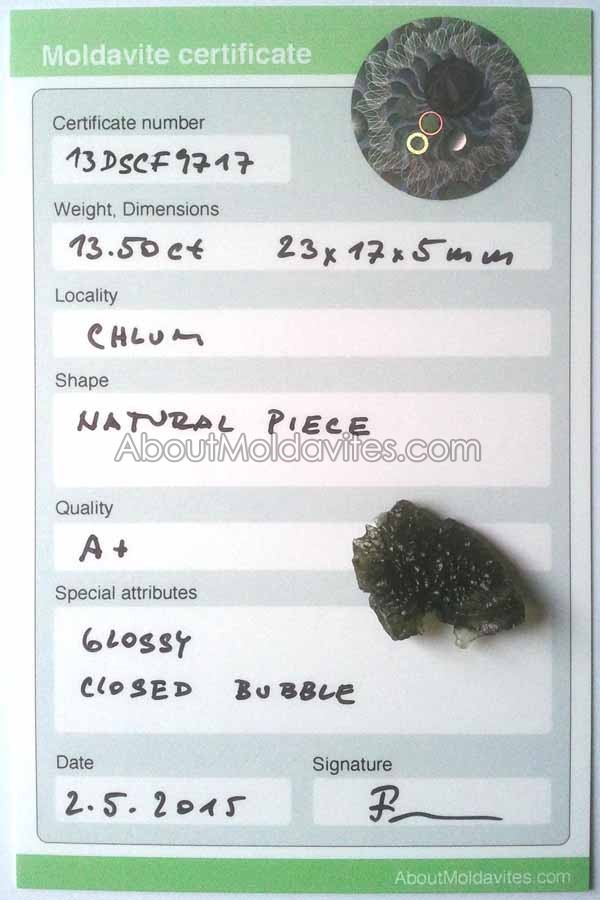 Moldavite certificate
Certificate number
13DSCF9717
Weight, Dimensions
13.50ct 23x17x5mm
Locality
CHLUM
Shape
NATURAL PIECE
AboutMoldavites.com
Quality
A+
Special attributes
GLOSSY
CLOSED BUBBLE
Date Signature
2.5.2015
AboutMoldavites.com